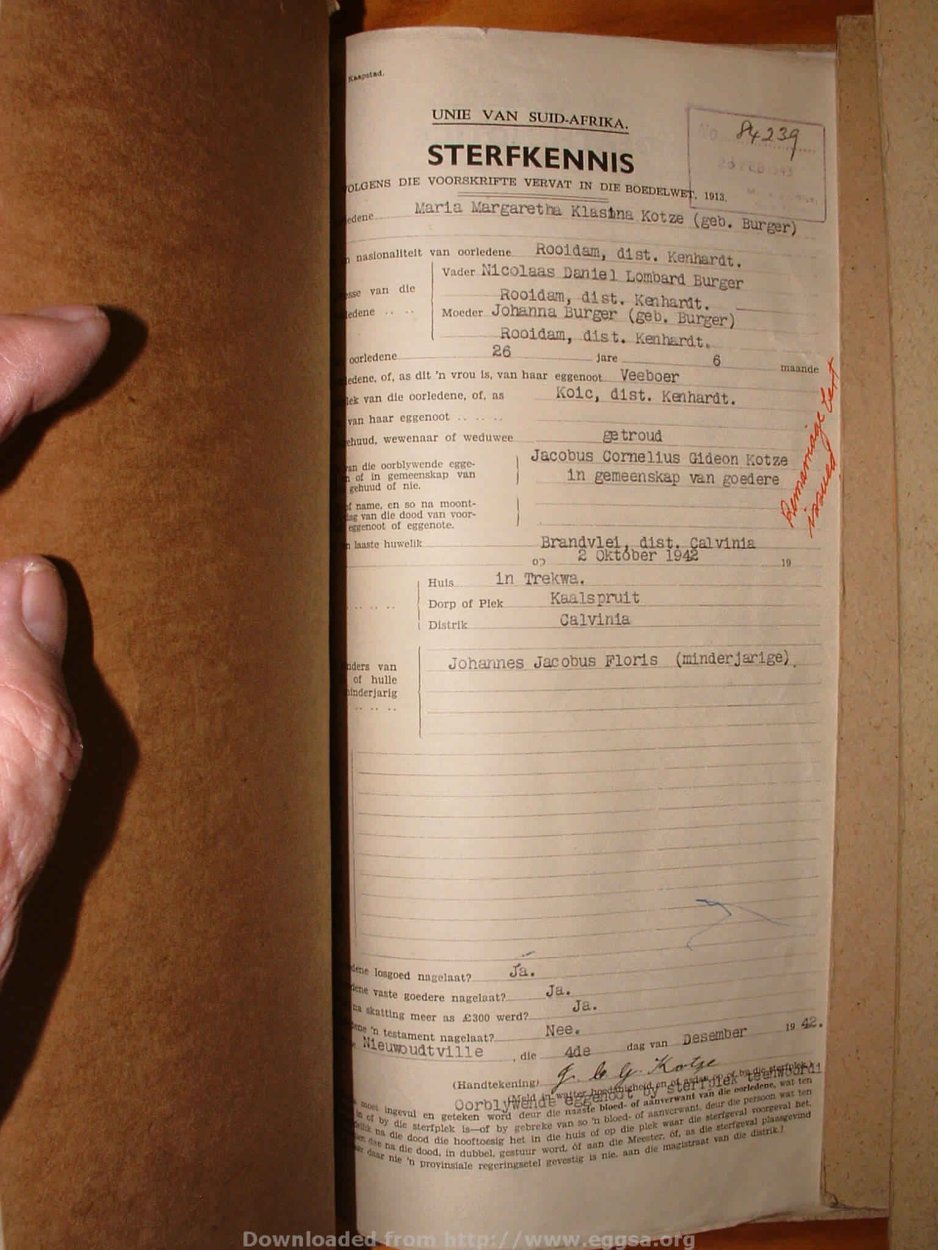 Kaapstad.
UNIE VAN SUID-AFRIKA.
No. 84239
STERFKENNIS
VOLGENS DIE VOORSKRIFTE VERVAT IN DIE BOEDELWET, 1913.
edene Maria Margaretha Klasina Kotze (geb. Burger)
nasionaliteit van oorledene Rooidam, dist. Kenhardt.
Vader Nicolaas Daniel Lombard Burger
sse van die Rooidam, dist. Kenhardt.
edene Moeder Johanna Burger (geb. Burger)
Rooidam, dist. Kenhardt.
oorledene 26 jare 6 maande
edene, of, as dit 'n vrou is, van haar eggenoot Veeboer
lek van die oorledene, of, as Koic, dist. Kenhardt.
van haar eggenoot
ehuud, wewenaar of weduwee getroud
van die oorblywende egge- Jacobus Cornelius Gideon Kotze
of in gemeenskap van in gemeenskap van goedere
gehuud of nie.
Remarriage Cert
issued
f name, en so na moont-
dag van die dood van voor-
eggenoot of eggenote.
laaste huwelik Brandvlei, dist. Calvinia
op 2 Oktober 1942 19
Huis in Trekwa.
Dorp of Plek Kaalspruit
Distrik Calvinia
nders van Johannes Jacobus Floris (minderjarige).
of hulle
minderjarig
dene losgoed nagelaat? Ja.
dene vaste goedere nagelaat? Ja.
na skatting meer as £300 werd? Ja.
ene 'n testament nagelaat? Nee.
Nieuwoudtville, die 4de dag van Desember 19 42.
(Handtekening) J. C. G. Kotze
Oorblywende eggenoot by sterfplek teenwoordi
moet ingevul en geteken word deur die naaste bloed- of aanverwant van die oorledene, wat ten
of by die sterfplek is—of by gebreke van so 'n bloed- of aanverwant, deur die persoon wat ten
na die dood die hooftoesig het in die huis of op die plek waar die sterfgeval voorgeval het.
dae na die dood, in dubbel, gestuur word, óf aan die Meester, óf, as die sterfgeval plaasgevind
daar nie 'n provinsiale regeringsetel gevestig is nie, aan die magistraat van die distrik.]
Downloaded from http://www.eggsa.org